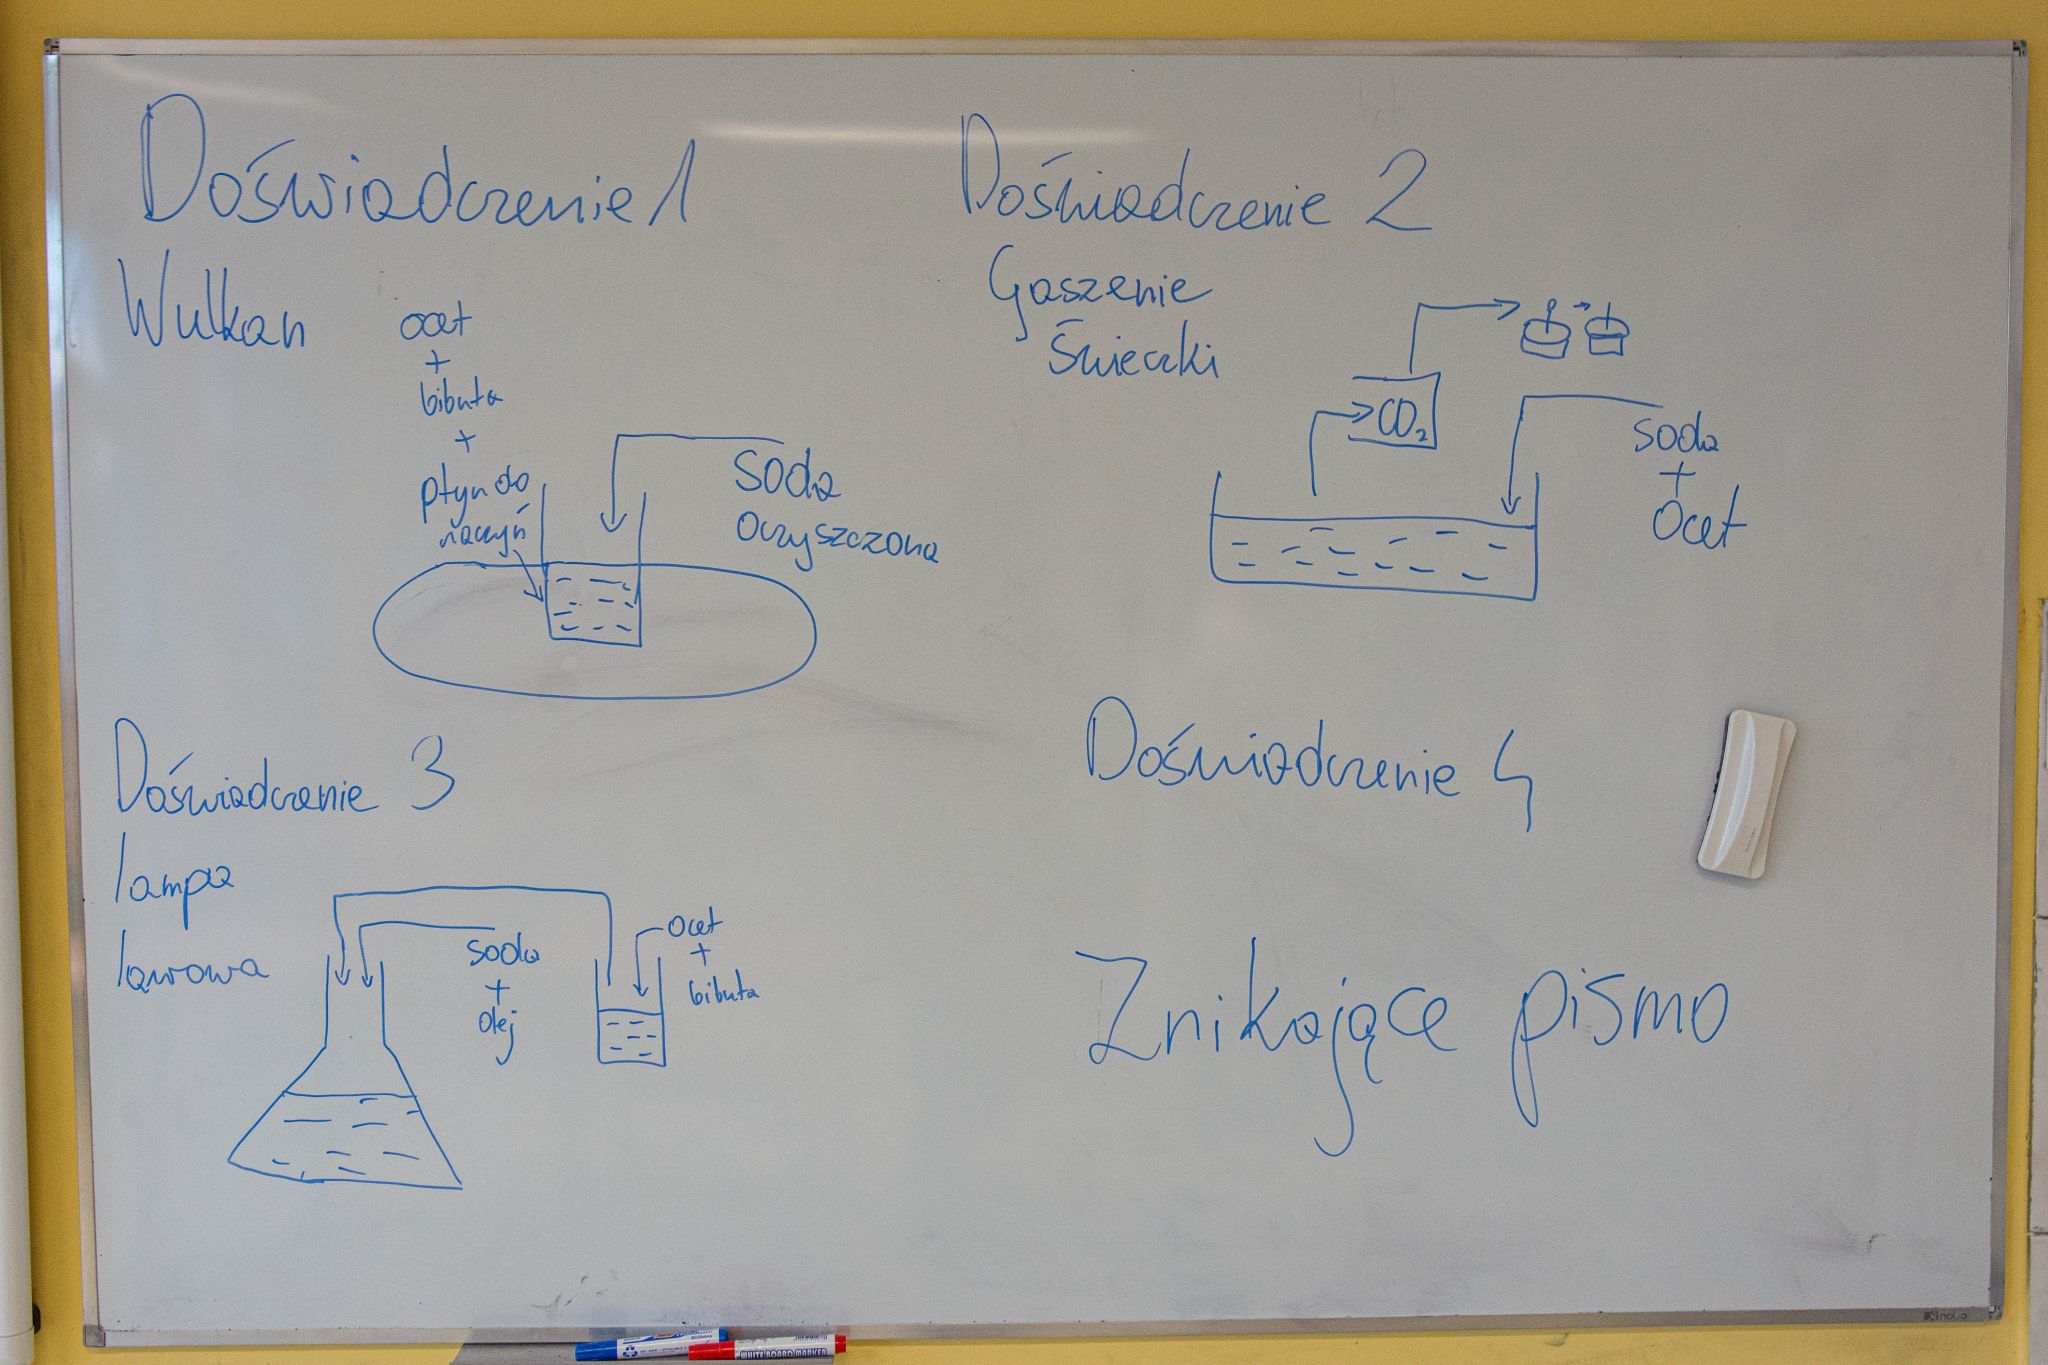 Doświadczenie 1
Wulkan
ocet
+
bibuła
+
płyn do
naczyń
soda
oczyszczona
Doświadczenie 2
Gaszenie
Świeczki
CO₂
soda
+
ocet
Doświadczenie 3
lampa
lawowa
soda
+
olej
ocet
+
bibuła
Doświadczenie 4
Znikające pismo
WHITE BOARD MARKER